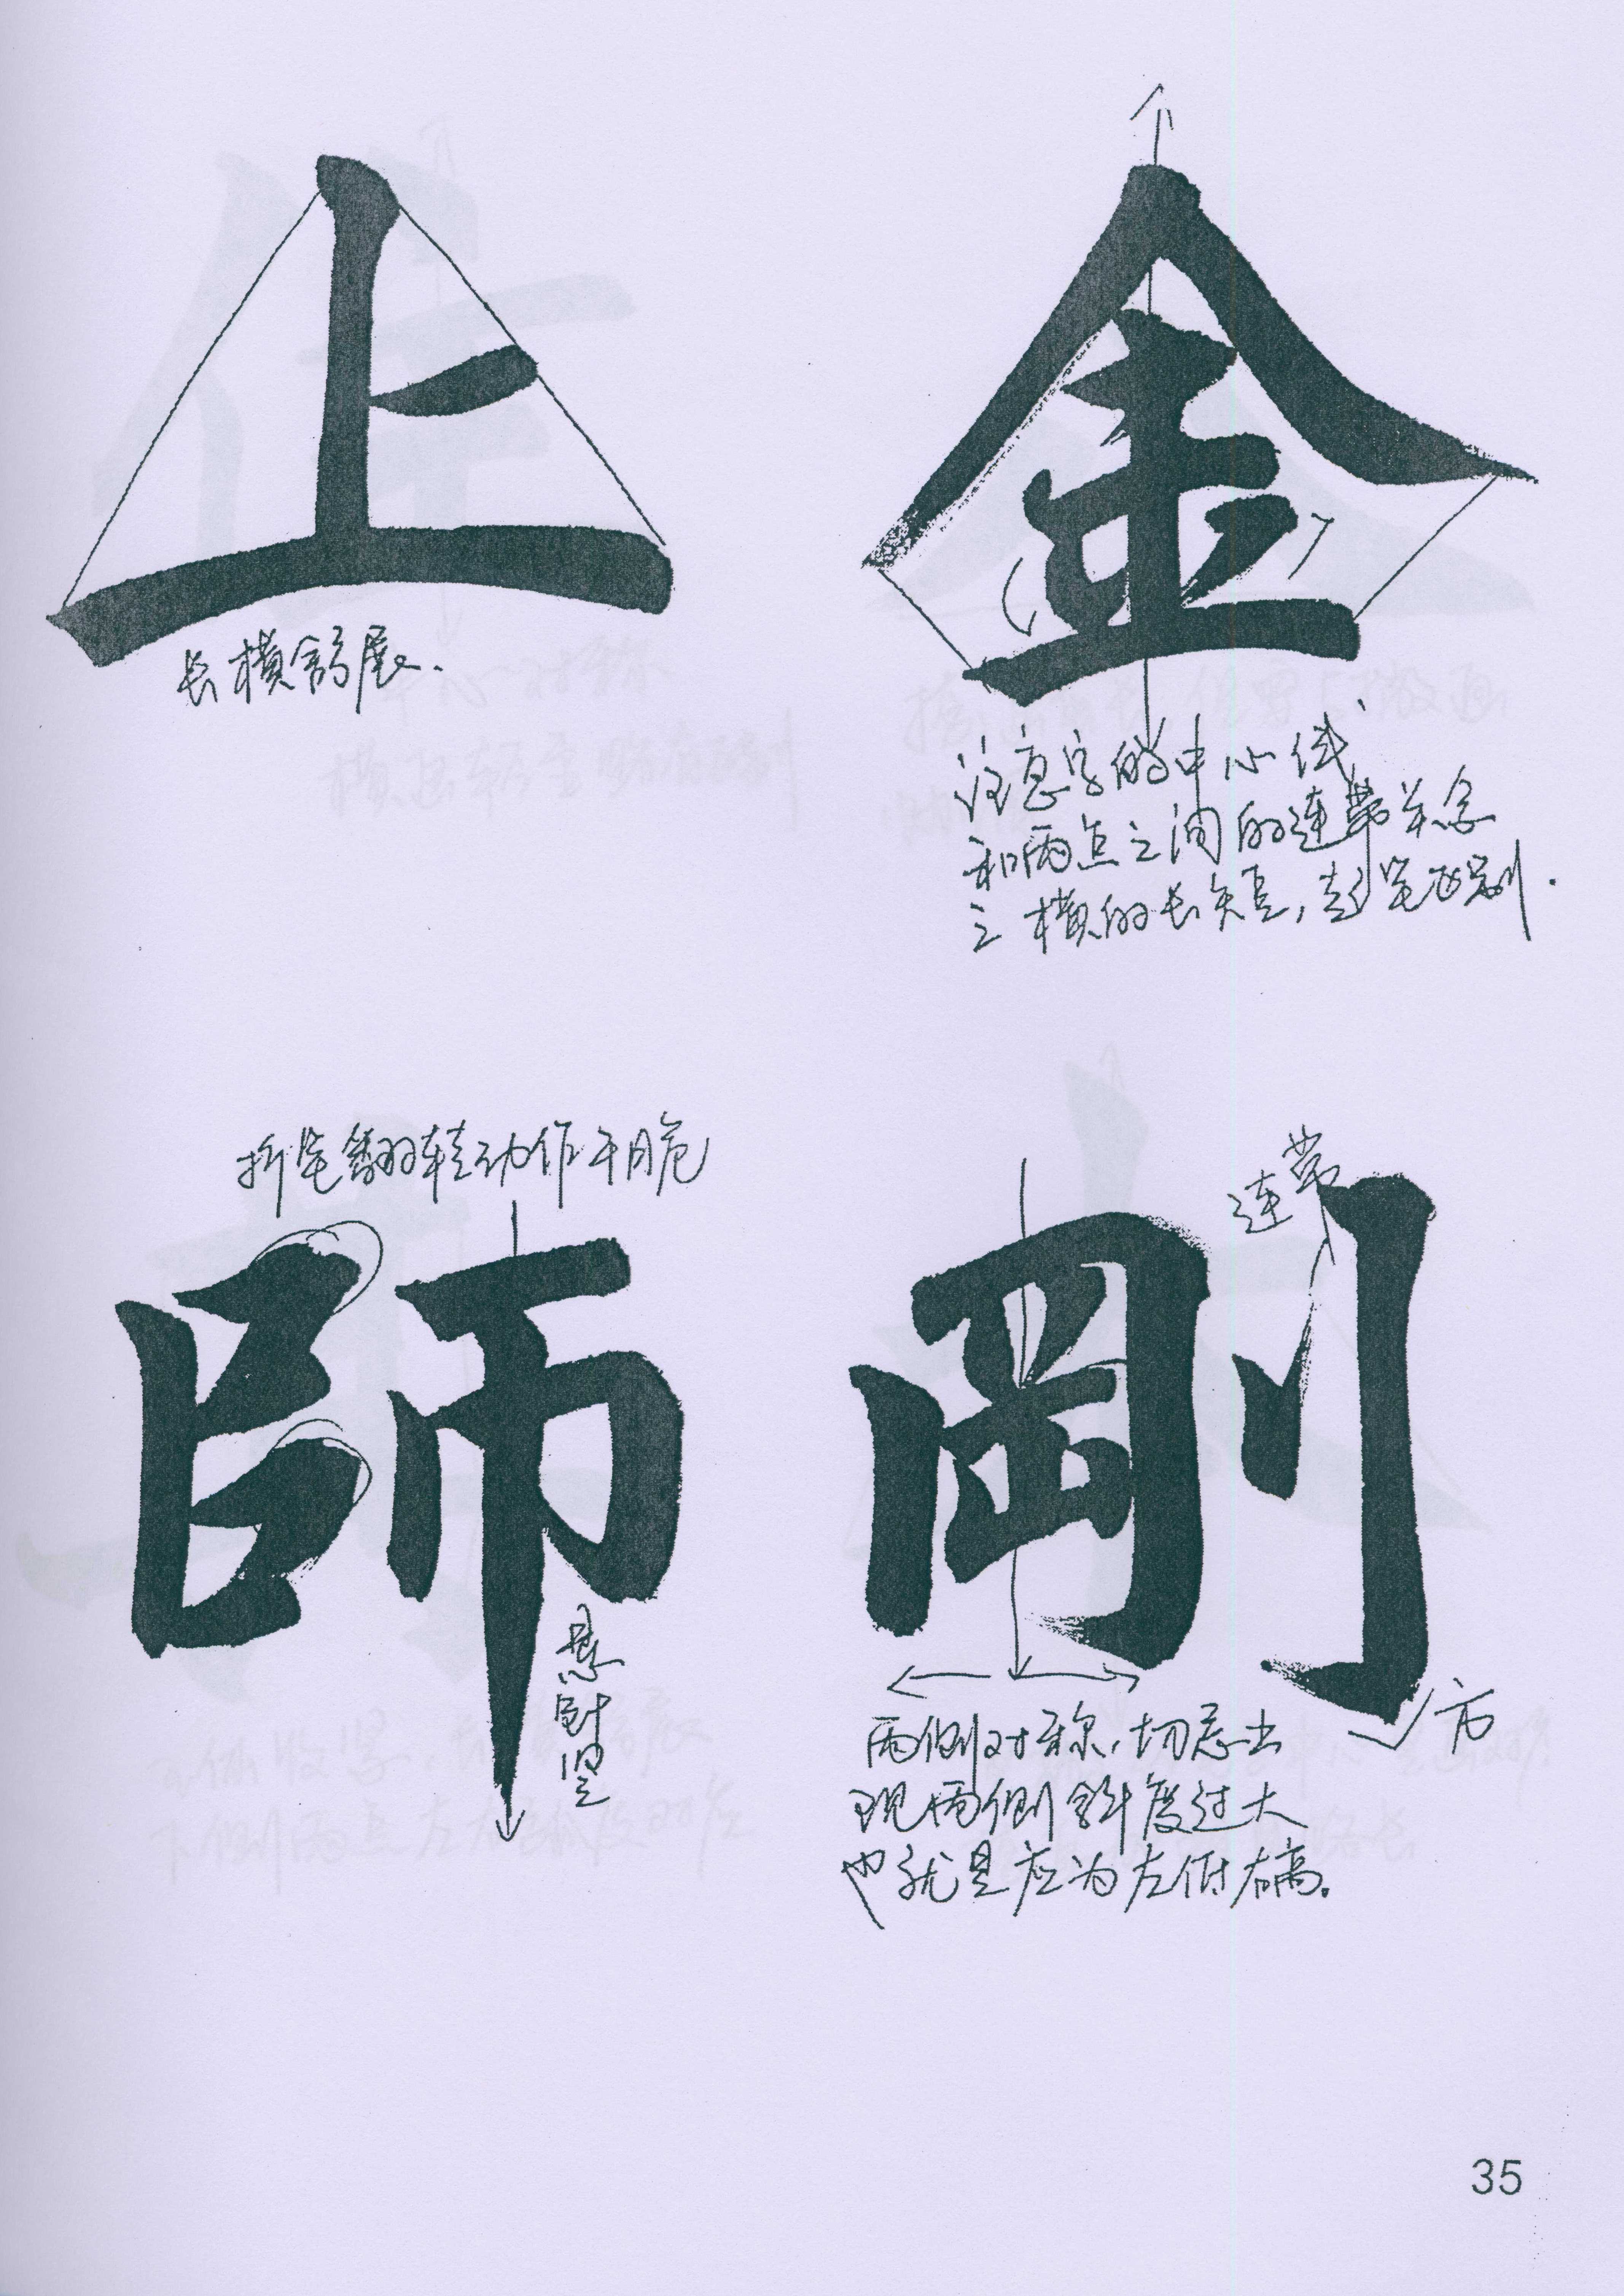 上
金
长横舒展.
注意字的中心线
和两点之间的连带关系
三横的长短,起笔区别.
折笔翻转动作干脆
連带
師
剛
悬针竖
方
两侧对称,切忌出
现两侧斜度过大
也就是应为左低右高。
35